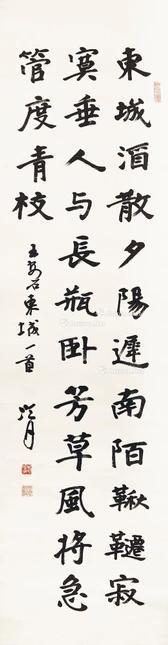 東城酒散夕陽遲南陌鞦韆寂
寞垂人与長瓶臥芳草風将急
管度青枝
王安石東城一首